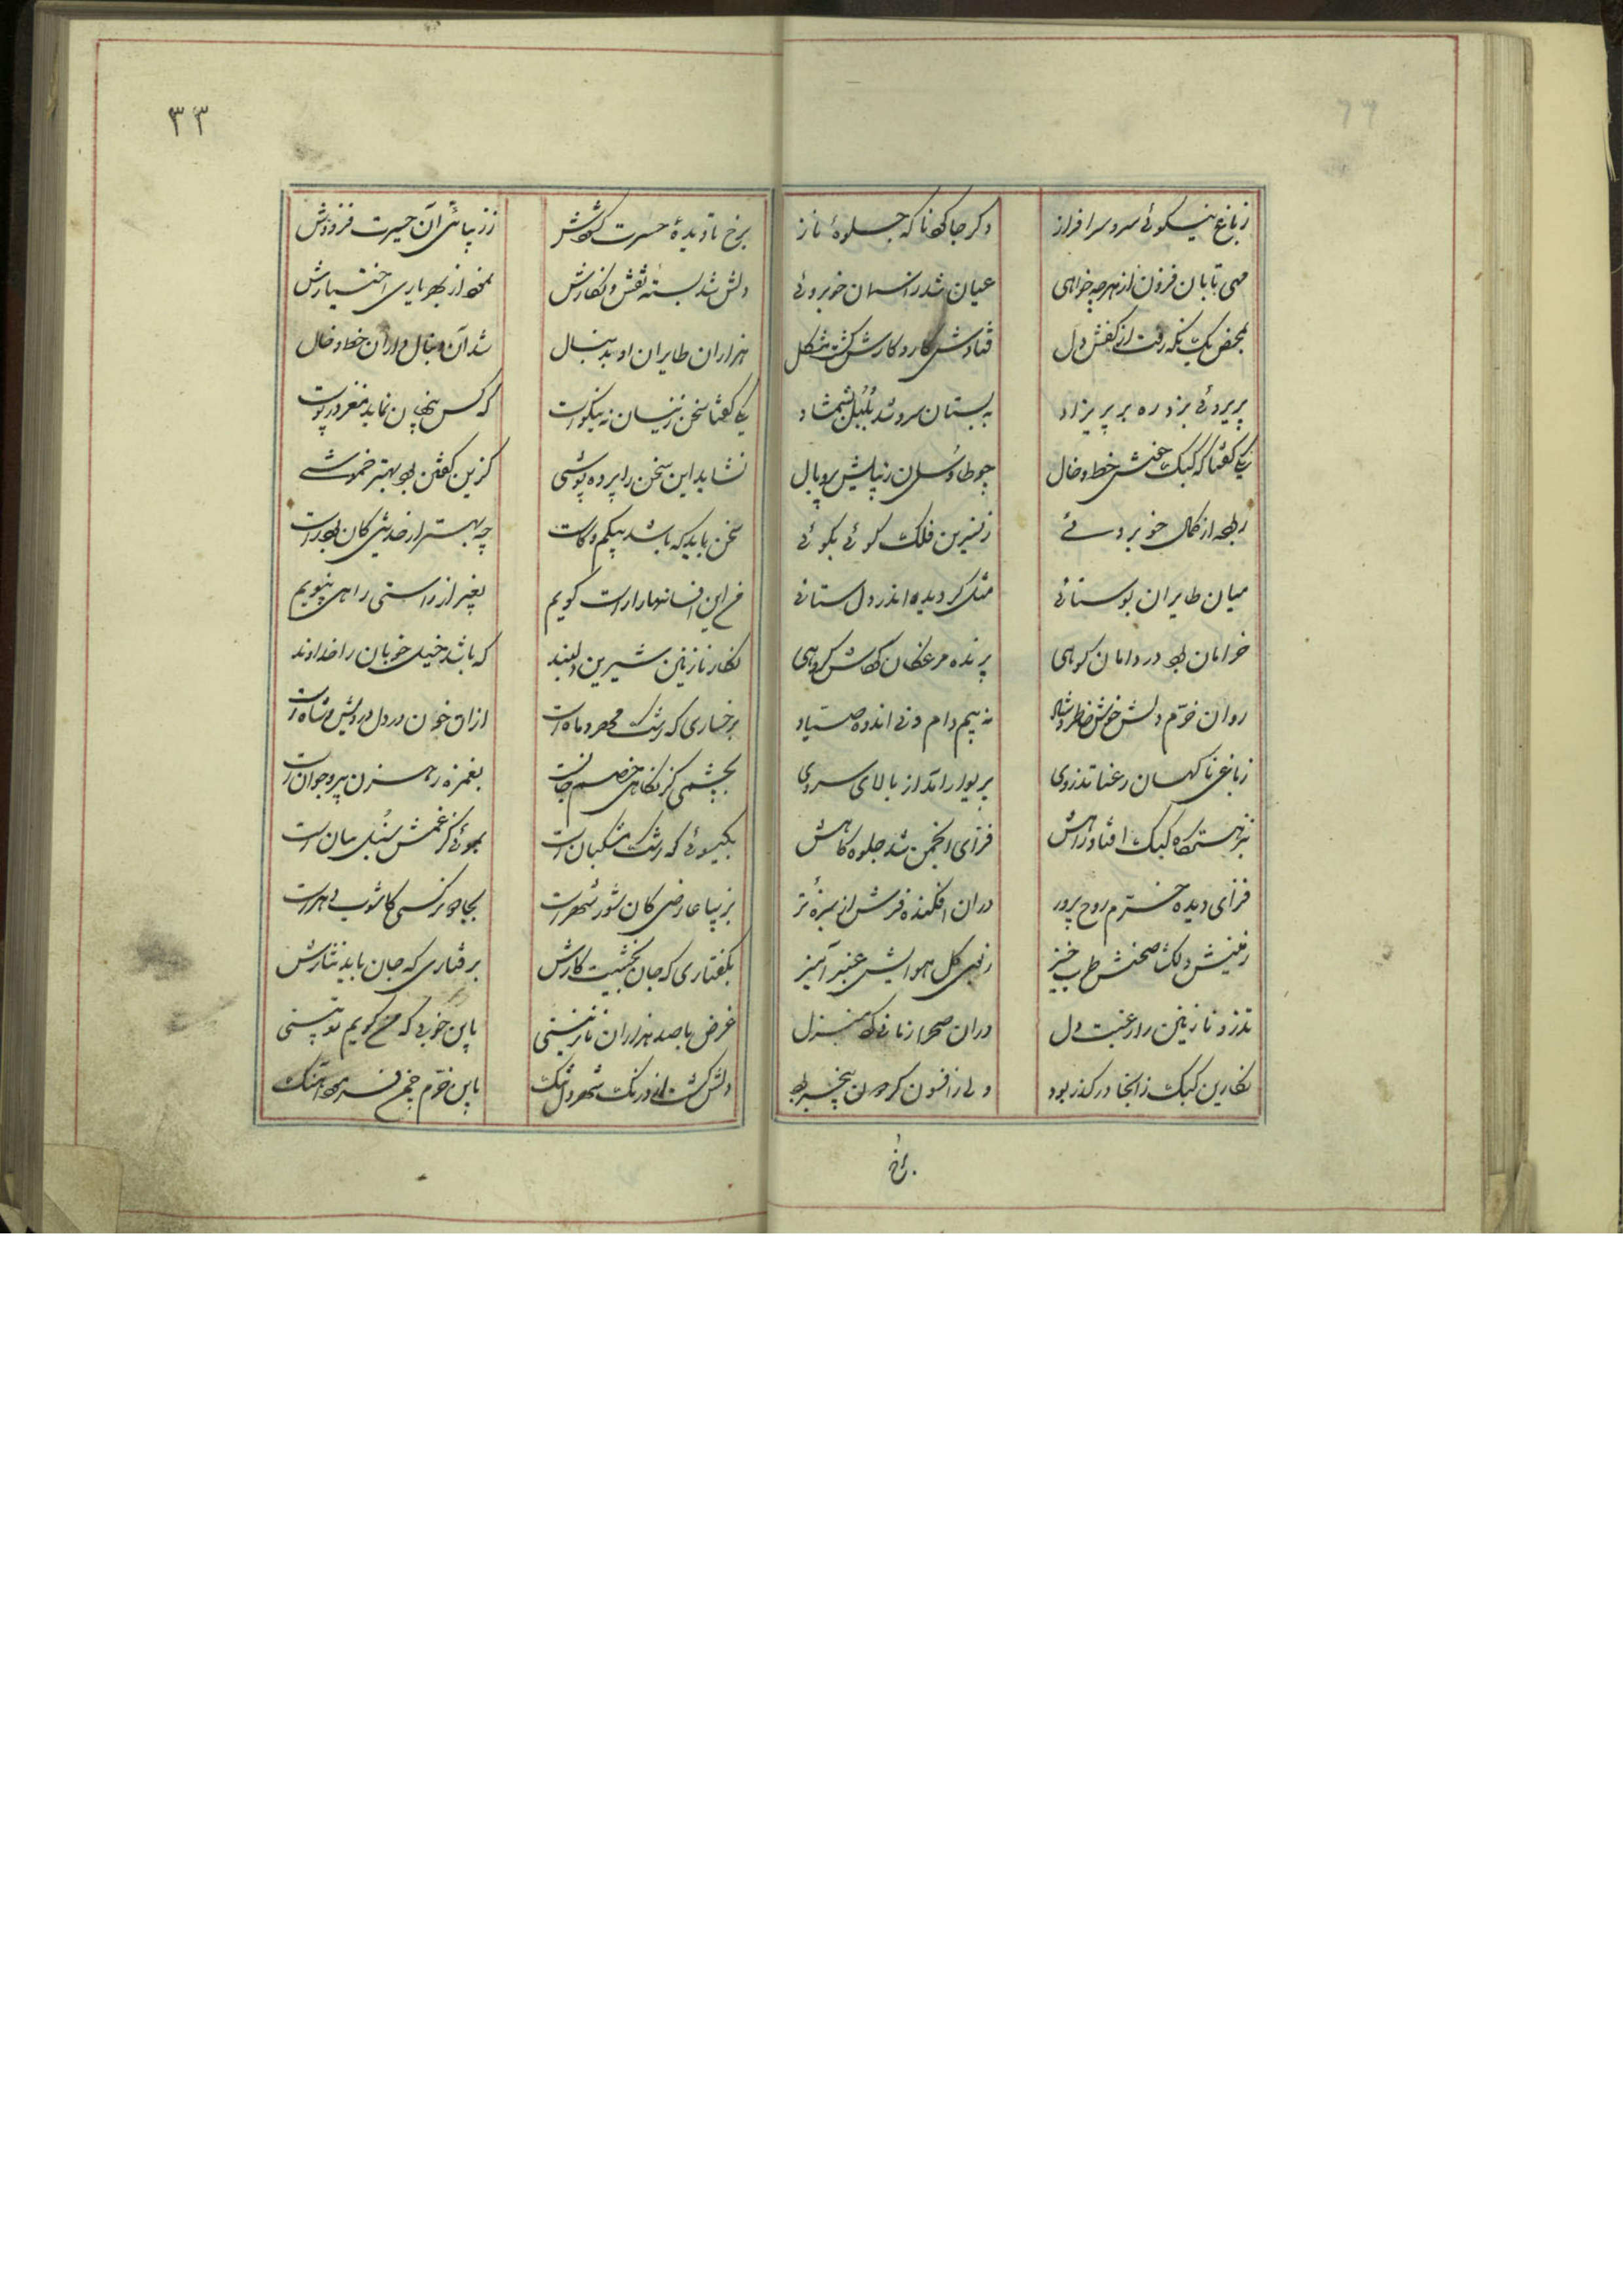 زباغ نیکوئی سرو سرافراز دگر جا که ناکه جلوهٔ ناز
مهی تابان فزون از هرچه خواهی عیان شد ز آسمان خوبروئی
بمحض یک نگه رفت از کفش دل فتادش کار و کارش گشت مشکل
پریروئی بزد ره بر پریزاد به بستان سرو شد بلبل بشمشاد
یکی گفتا که کبک خط و خال چو طاوسان زیبایش پر و بال
ربوده از کمال خوبروئی ز نسرین فلک گوئی بگوئی
میان طایران بوستانی مثل گردیده اندر دل ستانی
خرامان بود در دامان کوهی پرنده مرغکان گروهی
روان خرّم دلش خوش خاطرش شاد نه بیم دام و نی اندوه صیّاد
زباغی ناگهان رعنا تذروی پریوار آمد از بالای سروی
کبک افتاد راهش فزای انجمن شد جلوه گاهش
فزای دیده خرّم روح پرور در آن افکنده فرش از سبزهٔ تر
زمینش دلگش صحنش طرب خیز ز بوی گل هوایش عنبر آمیز
تذرو نازنین را رغبت دل در آن صحرا زمانی منزل
نگارین کبک ز آنجا در گذر بود ولی از افسون گردون بیخبر بود
برخ
۳۳
برخ نادیدهٔ حسرت کشش ز زیبائی آن حیرت فزودش
دلش شد بستهٔ نقش و نگارش نمود از بهر یاری اختیارش
هزاران طایران او بدنبال شد آن دنبال و از آن خط و خال
یکی گفتا سخن زینسان نه نیکوست که کس پنهان نماید مغز در پوست
نشاید این سخن را پرده پوشی کزین گفتن بود بهتر خموشی
سخن باید که باشد بیکم و کاست چه بهتر از حدیثی کان بود راست
من این افسانها را راست گویم بغیر از راستی راهی نپویم
نگار نازنین شیرین دلبند که باشد خیل خوبان را خداوند
برخساری که رشک مهر و ماه است از آن خون در دل درویش و شاه است
بچشمی کز نگاهی خصم جانست بغمزه رهزن پیر و جوان است
بگیسوئی که رشک مشکبان است بموئی کز غمش سنبل بیان است
بزیبا عارضی کان شور شهر است بجادو نرگسی کاشوب دهر است
بگفتاری که جان بخشیست کارش برفتاری که جان باید نثارش
غرض با صد هزاران نازنینی باین خوبی که میگویم تو بینی
دلش گشت از درنگ شهر دلتنگ باین خرّم چمن فرمود آهنگ